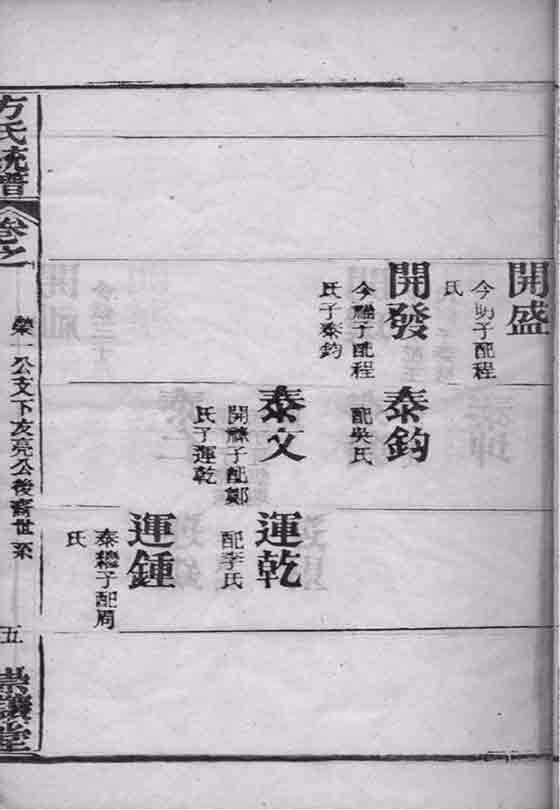 開盛
今明子配程
氏
開發
今福子配程
氏子泰鈞
泰鈞
配吳氏
泰文
開禄子配鄭
氏子運乾
運乾
配李氏
運鍾
泰穩子配周
氏
方氏統譜
卷之
榮一公支下友亮公後齊世系
五
崇讓堂